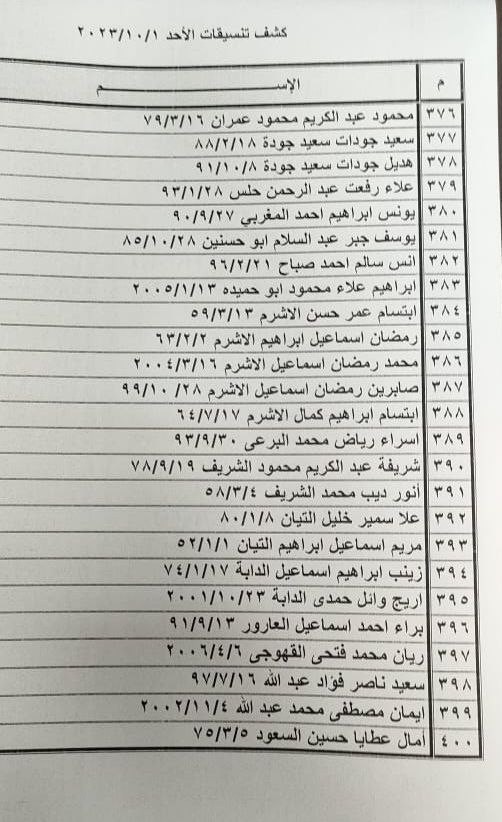 كشف تنسيقات الأحد ٢٠٢٣/١٠/١
م الإســـــــــــم
٣٧٦ محمود عبد الكريم محمود عمران ٧٩/٣/١٦
٣٧٧ سعيد جودات سعيد جودة ٨٨/٢/١٨
٣٧٨ هديل جودات سعيد جودة ٩١/١٠/٨
٣٧٩ علاء رفعت عبد الرحمن حلس ٩٣/١/٢٨
٣٨٠ يونس ابراهيم احمد المغربي ٩٠/٩/٢٧
٣٨١ يوسف جبر عبد السلام ابو حسنين ٨٥/١٠/٢٨
٣٨٢ انس سالم احمد صباح ٩٦/٢/٢١
٣٨٣ ابراهيم علاء محمود ابو حميده ٢٠٠٥/١/١٣
٣٨٤ ابتسام عمر حسن الاشرم ٥٩/٣/١٣
٣٨٥ رمضان اسماعيل ابراهيم الاشرم ٦٣/٢/٢
٣٨٦ محمد رمضان اسماعيل الاشرم ٢٠٠٤/٣/١٦
٣٨٧ صابرين رمضان اسماعيل الاشرم ٩٩/١٠/٢٨
٣٨٨ ابتسام ابراهيم كمال الاشرم ٦٤/٧/١٧
٣٨٩ اسراء رياض محمد البرعى ٩٣/٩/٣٠
٣٩٠ شريفة عبد الكريم محمود الشريف ٧٨/٩/١٩
٣٩١ أنور ديب محمد الشريف ٥٨/٣/٤
٣٩٢ علا سمير خليل التيان ٨٠/١/٨
٣٩٣ مريم اسماعيل ابراهيم التيان ٥٢/١/١
٣٩٤ زينب ابراهيم اسماعيل الدابة ٧٤/١/١٧
٣٩٥ اريج وائل حمدى الدابة ٢٠٠١/١٠/٢٣
٣٩٦ براء احمد اسماعيل العارور ٩١/٩/١٣
٣٩٧ ريان محمد فتحى القهوجى ٢٠٠٦/٤/٦
٣٩٨ سعيد ناصر فؤاد عبد الله ٩٧/٧/١٦
٣٩٩ ايمان مصطفى محمد عبد الله ٢٠٠٢/١١/٤
٤٠٠ أمال عطايا حسين السعود ٧٥/٣/٥